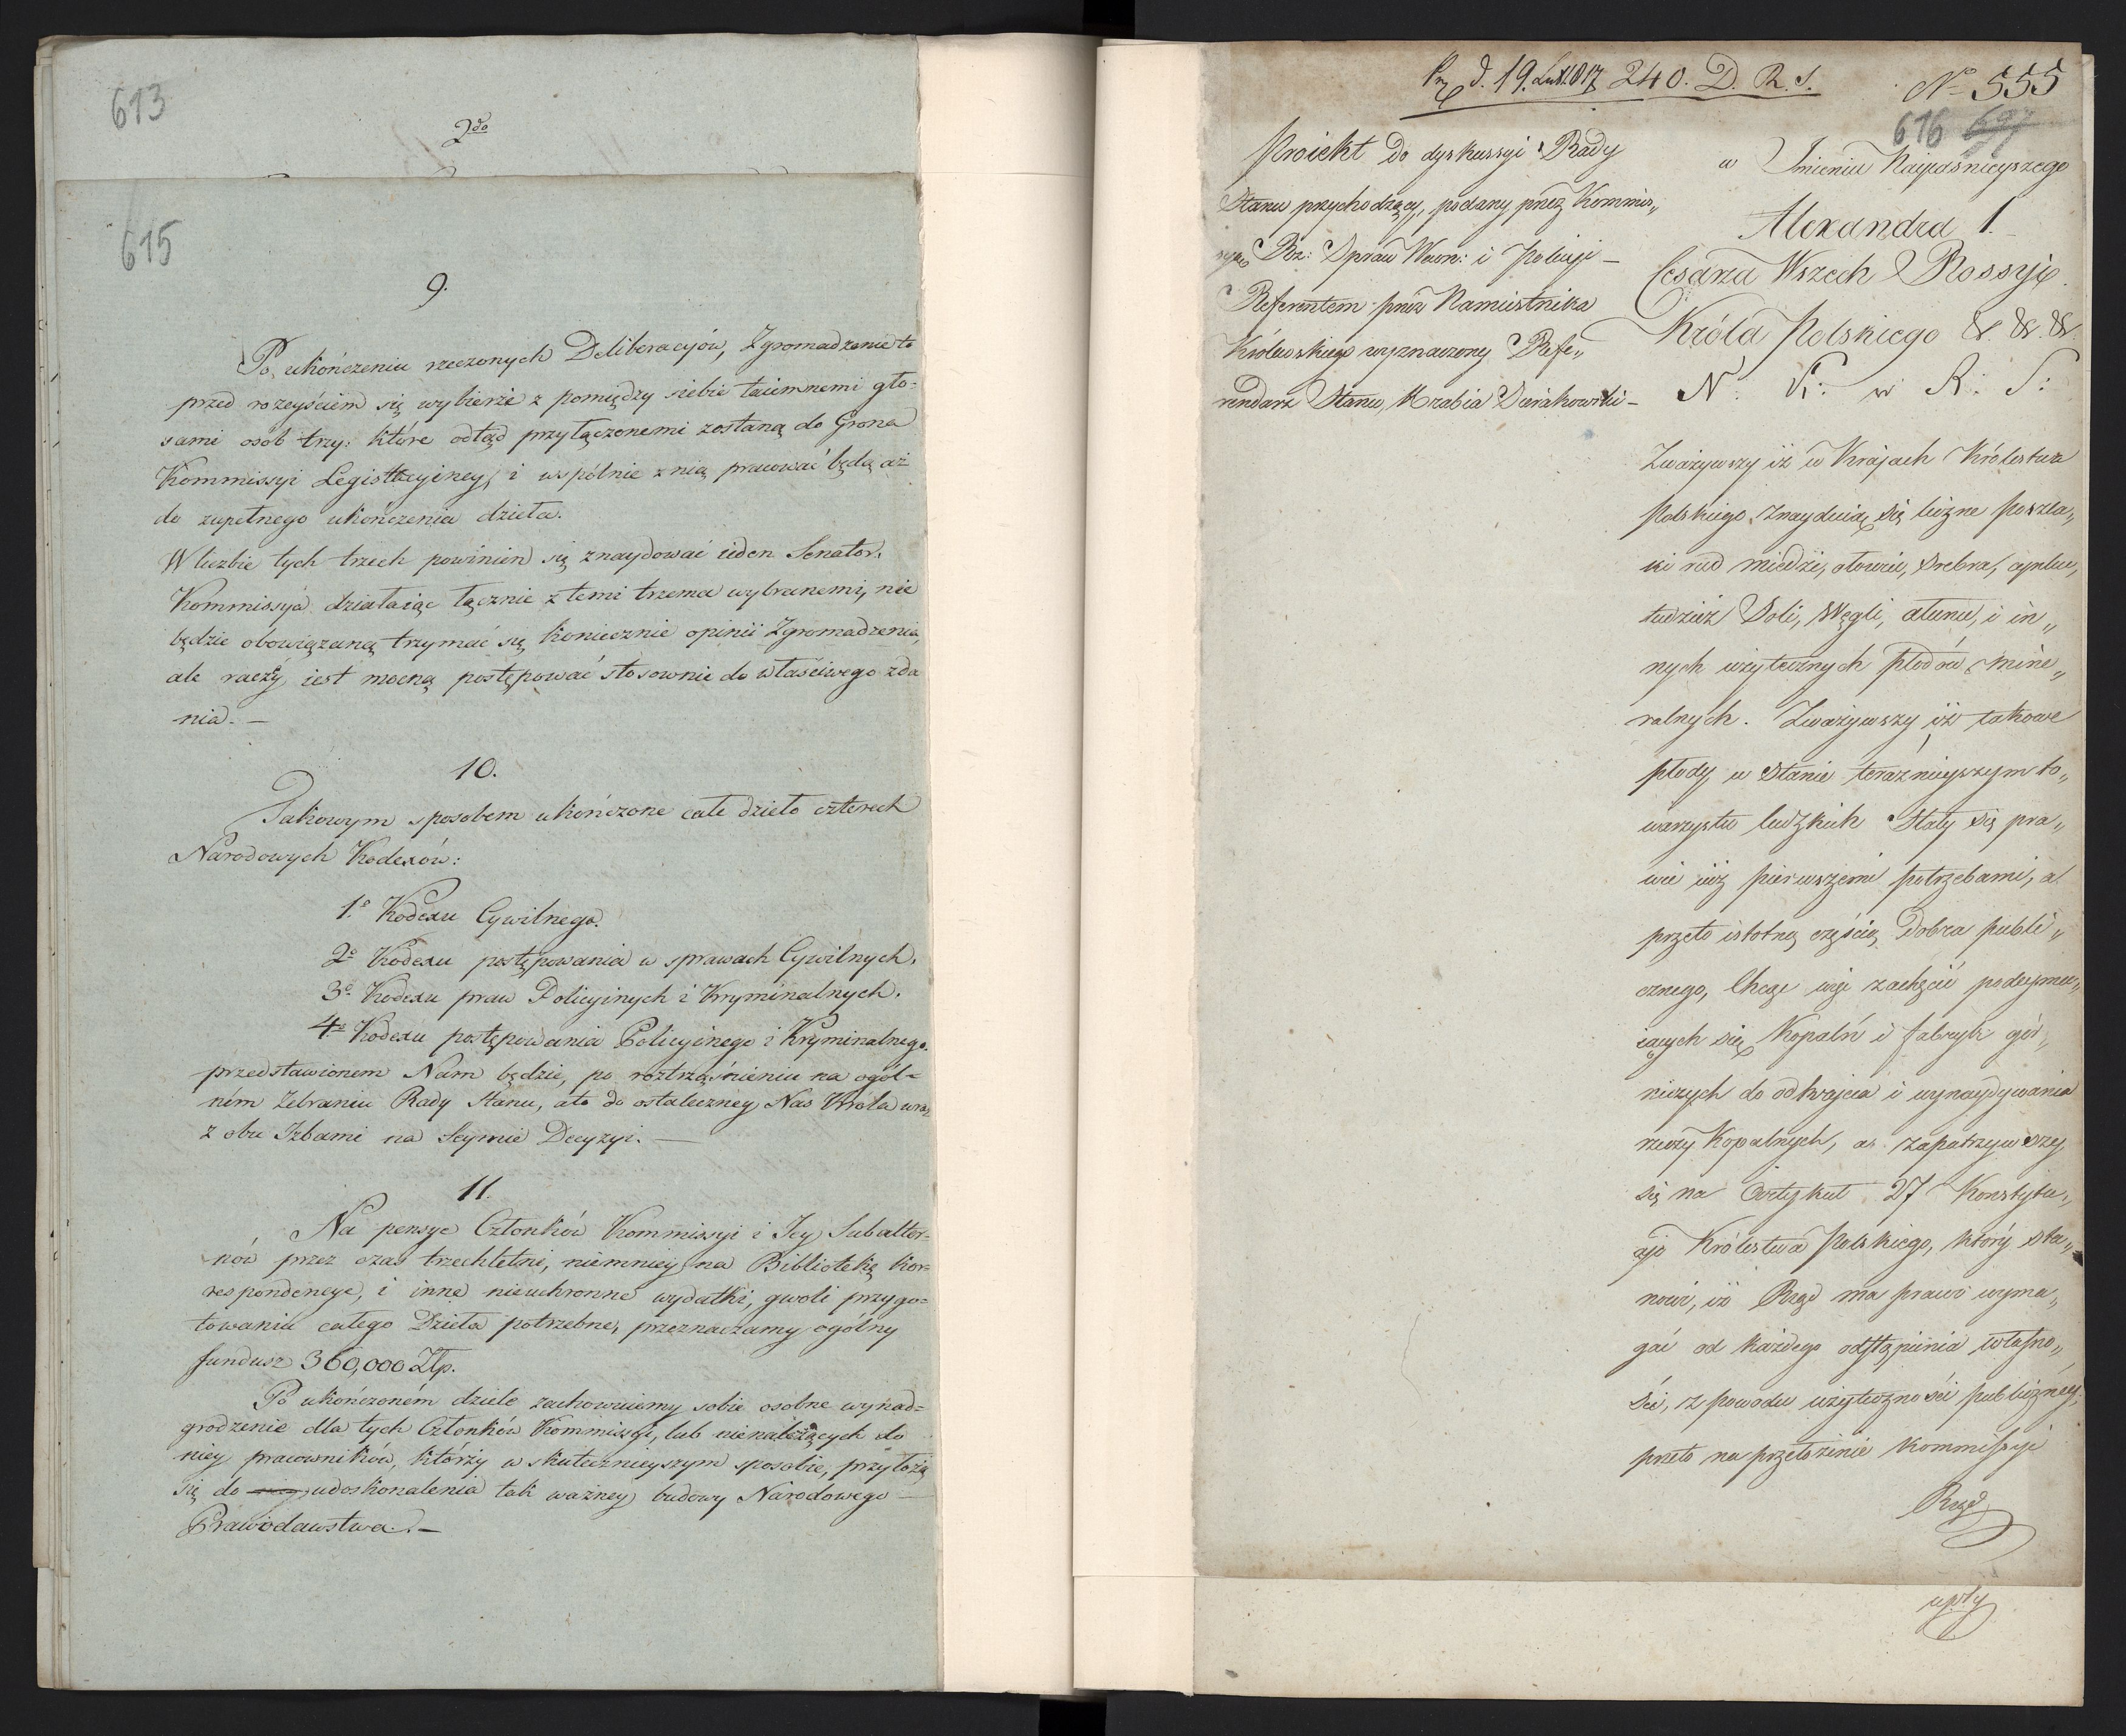 613
2do
615
9.
Po ukończeniu rzeczonych Deliberacyiów, Zgromadzenie to
przed rozeyściem się wybierze z pomiędzy siebie taiemnemi gło=
sami osób trzy: które odtąd przyłączonemi zostaną do Grona
Kommissyi Legislacyiney, i wspólnie z nią pracować będą aż
do zupełnego ukończenia dzieła.
W liczbie tych trzech powinien się znaydować ieden Senator.
Kommissya działaiąc łącznie z temi trzema wybranemi, nie
będzie obowiązaną trzymać się koniecznie opinii Zgromadzenia,
ale raczéy iest mocną postępować stosownie do właściwego zda
nia. —
10.
Takowym sposobem ukończone całe dzieło czterech
Narodowych Kodexów:
1o Kodexu Cywilnego.
2o Kodexu postępowania w sprawach Cywilnych.
3o Kodexu praw Policyinych i Kryminalnych.
4o Kodexu postępowania Policyinego i Kryminalnego.
przedstawionem Nam będzie, po roztrząśnieniu na ogól=
ném Zebraniu Rady Stanu, a to do ostateczney Nas Króla wraz
z obu Izbami na Seymie Decyzyi. —
11.
Na pensye Członków Kommissyi i Jey Subalter=
nów przez czas trzechletni, niemniey na Bibliotekę kor=
respondencye, i inne nieuchronne wydatki, gwoli przygo=
towaniu całego Dzieła potrzebne, przeznaczamy ogólny
fundusz 360,000 Złp.
Po ukończoném dziele zachowuiemy sobie osobne wynad=
grodzenie dla tych Członków Kommissyi, lub nienależących do
niey pracowników, którzy w skutecznieyszym sposobie, przyłożą
się do udoskonalenia tak ważney budowy Narodowego —
Prawodawstwa. —
d. 19. Lut. 817 240. D. R. S.
No 555
616
Proiekt do dyskussyi Rady
Stanu przychodzący, podany przez Kommis„
syę Rz: Spraw Wewn: i Policyi —
Referentem przez Namiestnika
Królewskiego wyznaczony Refe„
rendarz Stanu, Hrabia Dzierżkowski —
w Imieniu Nayiaśnieyszego
Alexandra 1.
Cesarza Wszech Rossyi
Króla Polskiego &. &. &.
N. K: w R: S:
Zważywszy iż w Krajach Królestwa
Polskiego znayduią się liczne poszla„
ki rud miedzi, ołowiu, srebra, cynku,
tudzież Soli, Węgli, ałunu, i in„
nych użytecznych płodów mine„
ralnych. Zważywszy iż takowe
płody w stanie teraźnieyszym to„
warzystw ludzkich stały się pra„
wie iuż pierwszemi potrzebami, a
przeto istotną częścią Dobra publi„
cznego, Chcąc więc zachęcić podeymu„
iących się Kopalń i fabryk gór„
niczych do odkrycia i wynaydywania
rzeczy Kopalnych, a zapatrzywszy
się na Artykuł 27 Konstytu„
cyi Królestwa Polskiego, który sta„
nowi, iż Rząd ma prawo wyma„
gać od każdego odstąpienia własno„
ści, z powodu użyteczności publiczney,
przeto na przełożenie Kommissyi
Rząd